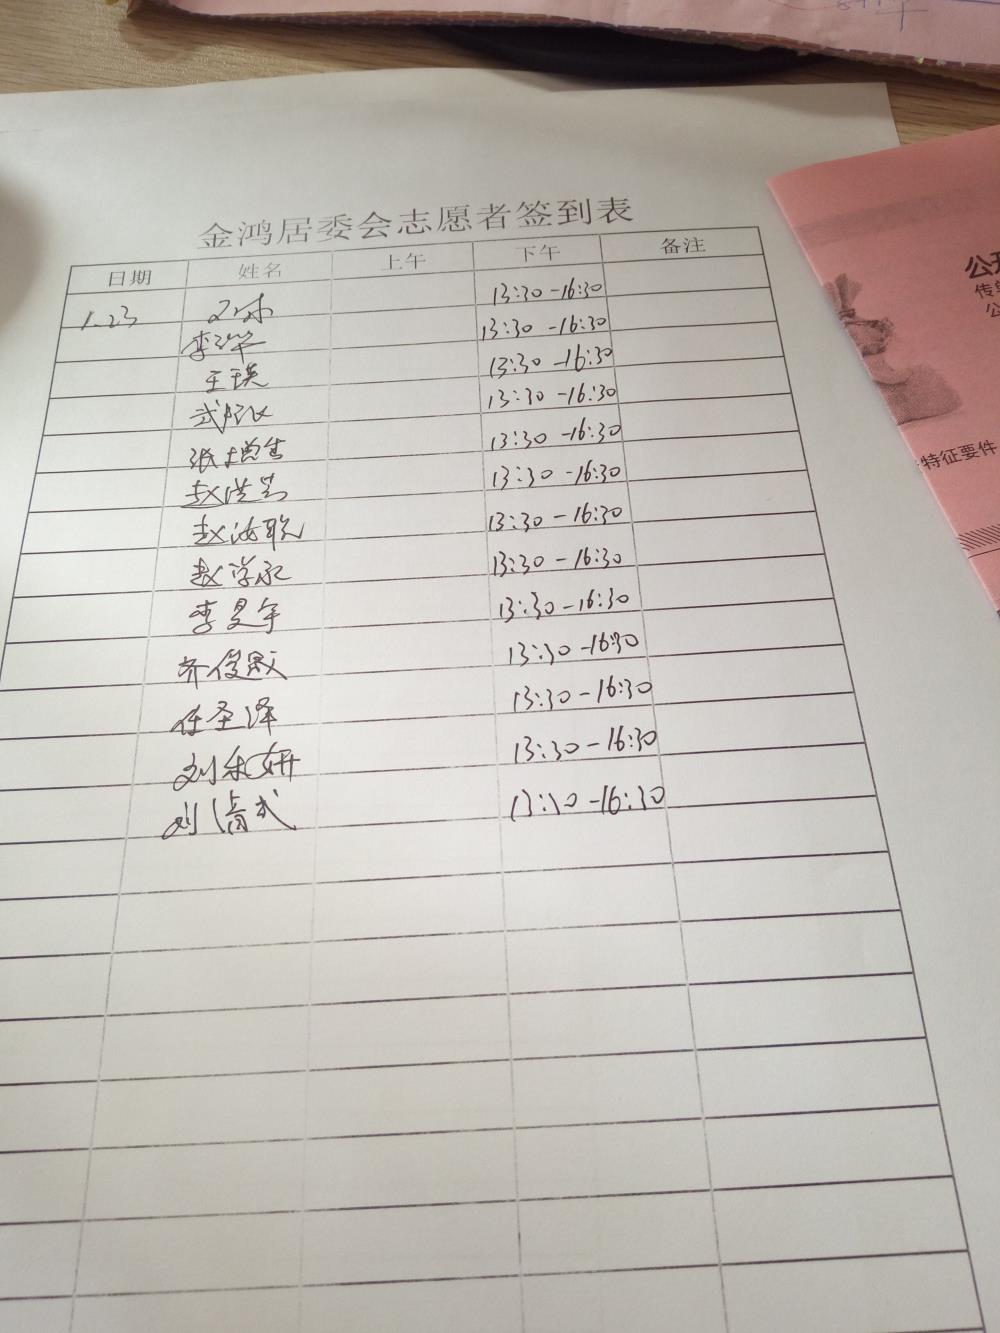 金鸿居委会志愿者签到表
日期 姓名 上午 下午 备注
1.23 13:30-16:30
李 13:30-16:30
王瑛 13:30-16:30
武 13:30-16:30
张增 13:30-16:30
赵浩 13:30-16:30
赵海聪 13:30-16:30
赵学永 13:30-16:30
李昊宇 13:30-16:30
齐俊 13:30-16:30
任圣泽 13:30-16:30
刘禾妍 13:30-16:30
刘清武 13:30-16:30
公开
传单
公
特征要件